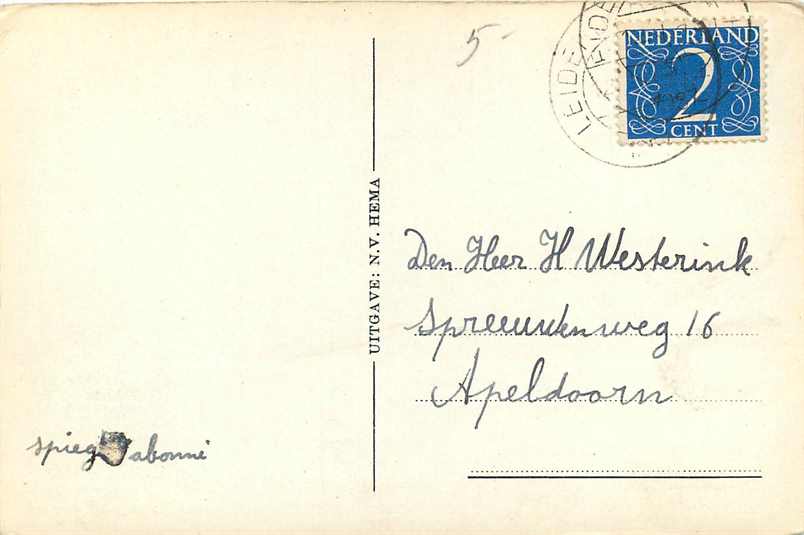 5-
LEIDEN
NEDERLAND
2
CENT
UITGAVE: N.V. HEMA
Den Heer H Westerink
Spreeuwenweg 16
Apeldoorn
abonné